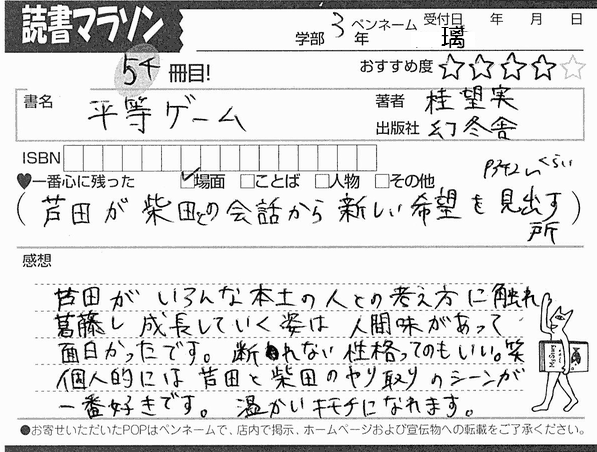 読書マラソン
学部 3年 ペンネーム 璃 受付日 年 月 日
54冊目! おすすめ度 ★★★★☆
書名 平等ゲーム 著者 桂望実
出版社 幻冬舎
ISBN
P342〜くらい
♥一番心に残った ☑場面 □ことば □人物 □その他
(芦田が柴田との会話から新しい希望を見出す
所)
感想
芦田がいろんな本土の人との考え方に触れ
葛藤し成長していく姿は人間味があって
面白かったです。断れない性格ってのもいい。笑
個人的には芦田と柴田のやり取りのシーンが
一番好きです。温かいキモチになれます。
●お寄せいただいたPOPはペンネームで、店内で掲示、ホームページおよび宣伝物への転載をご了承ください。